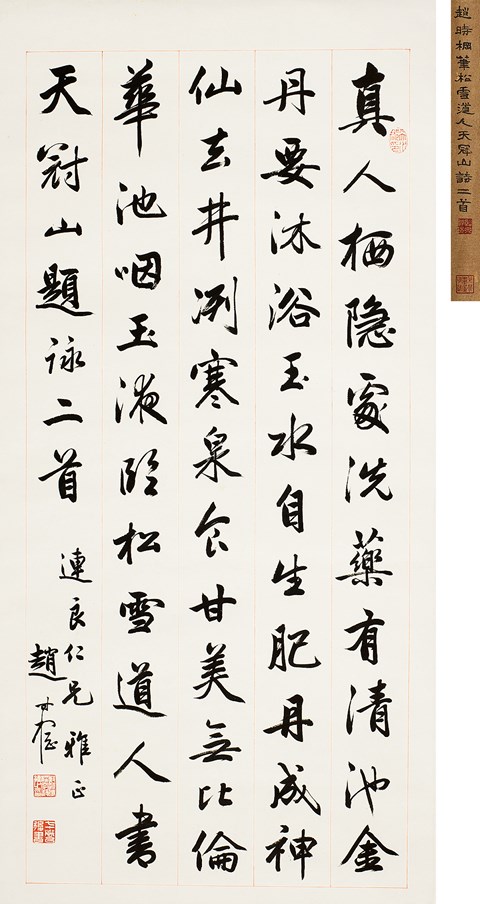 真人栖隐處洗藥有清池金
丹要沐浴玉水自生肥丹成神
仙去井冽寒泉食甘美無比倫
華池咽玉液臨松雪道人書
天冠山題詠二首
連良仁兄雅正
趙叔孺
趙時棡筆松雪道人天冠山詩二首